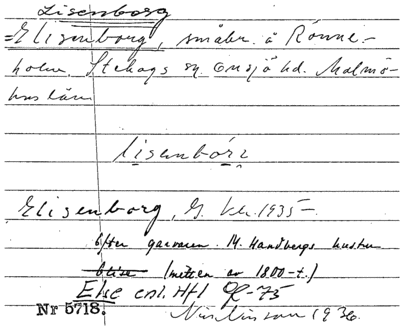 Lisenborg
=Elisenborg, småbr. å Rönne-
holm. Stehags sn. Onsjö hd. Malmö-
hus län
lisenbórz
Elisenborg, G. kt. 1935–
efter garvaren M. Handbergs hustru
(mitten av 1800-t.)
Else enl. Hfl
Nr 5718. 1936